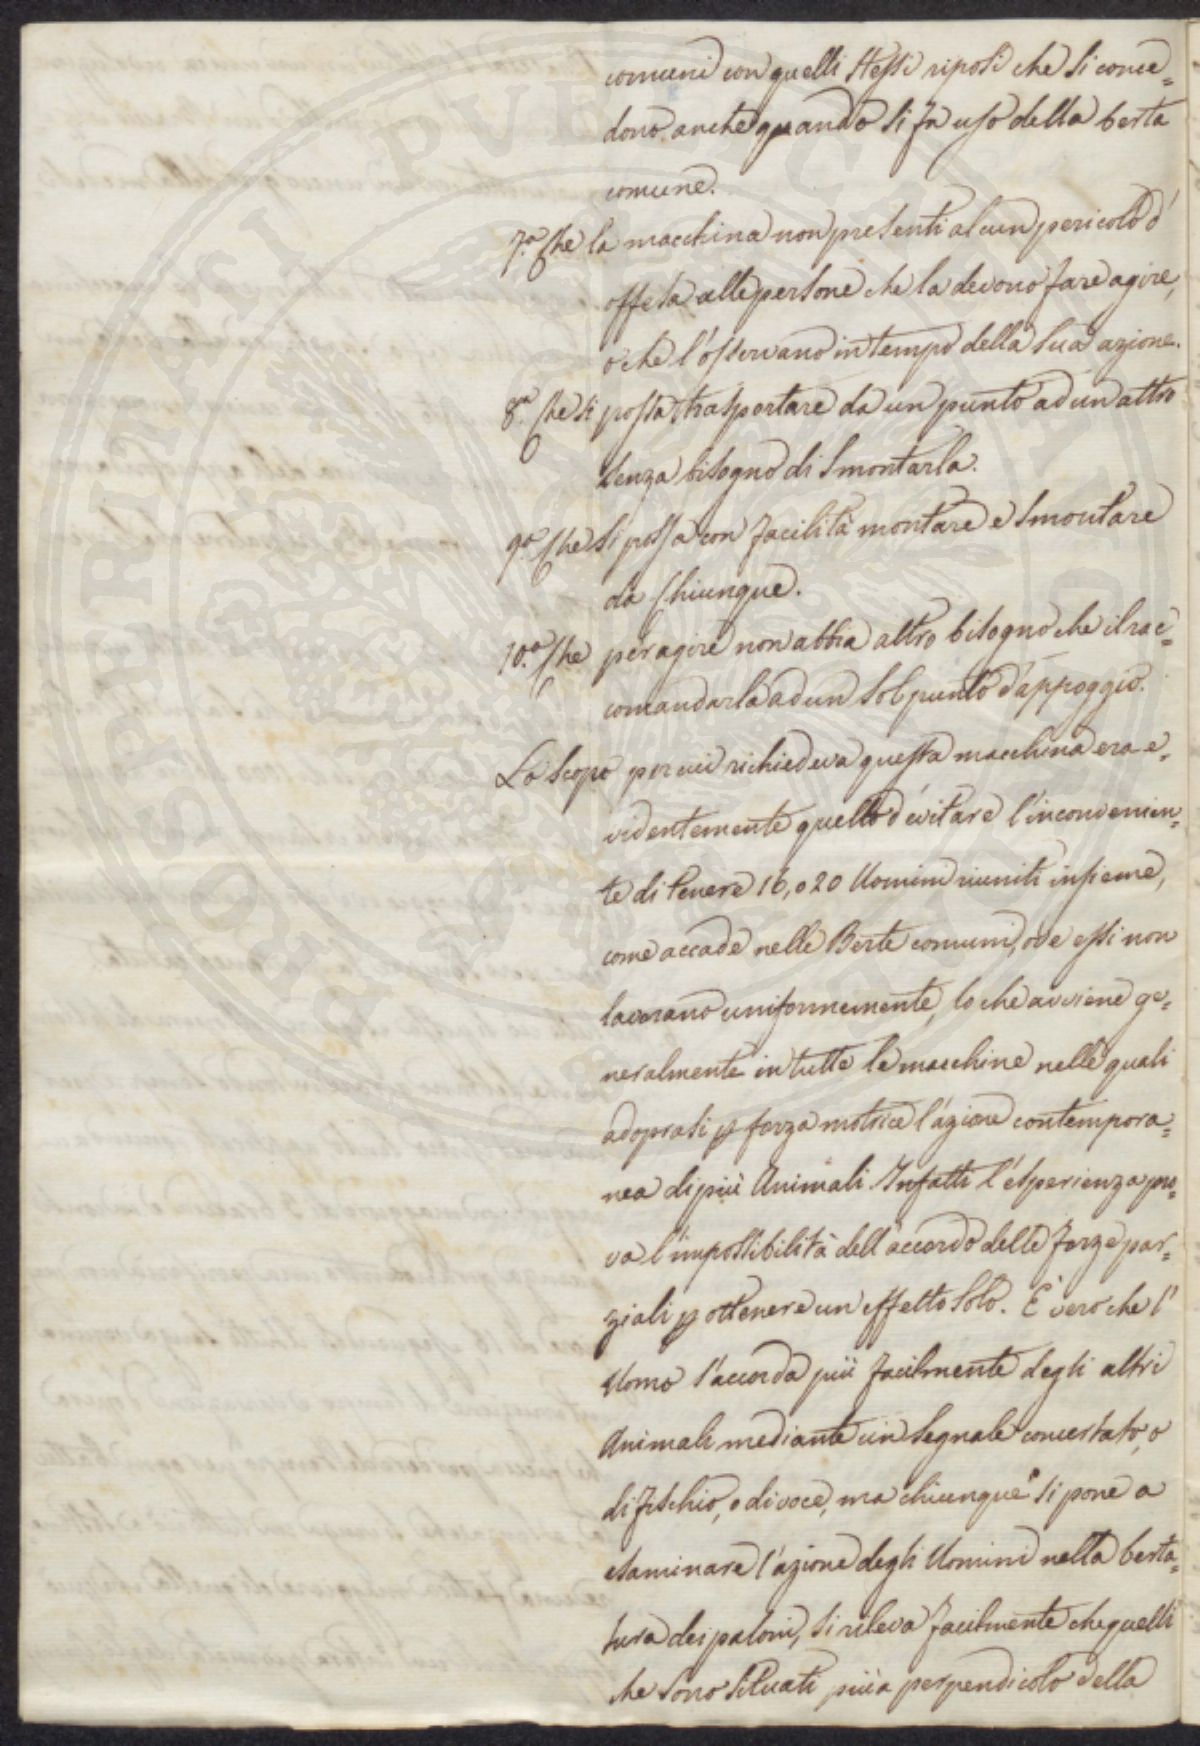 comuni con quelli stessi riposi che si conce=
dono anche quando si fa uso della berta
comune.
7.ª Che la macchina non presenti alcun pericolo d'
offesa alle persone che la devono fare agire,
o che l'osservano in tempo della sua azione.
8.ª Che si possa trasportare da un punto ad un altro
senza bisogno di smontarla.
9.ª Che si possa con facilità montare e smontare
da Chiunque.
10.ª Che per agire non abbia altro bisogno che il rac=
comandarla ad un sol punto d'appoggio.
Lo scopo per cui richiedeva questa macchina era e=
videntemente quello d'evitare l'inconvenien=
te di tenere 16, o 20 Uomini riuniti insieme,
come accade nelle Berte comuni, ove essi non
lavorano uniformemente, lo che avviene ge=
neralmente in tutte le macchine nelle quali
adoprasi p forza motrice l'azione contempora=
nea di più Animali. Infatti l'esperienza pro=
va l'impossibilità dell'accordo delle forze par=
ziali p ottenere un effetto solo. È vero che l'
Uomo s'accorda più facilmente degli altri
Animali mediante un segnale concertato, o
di fischio, o di voce, ma chiunque si pone a
esaminare l'azione degli Uomini nella berta=
tura dei paloni, si rileva facilmente che quelli
che sono situati più a perpendicolo della
PROSPERITATI PVBLICAE